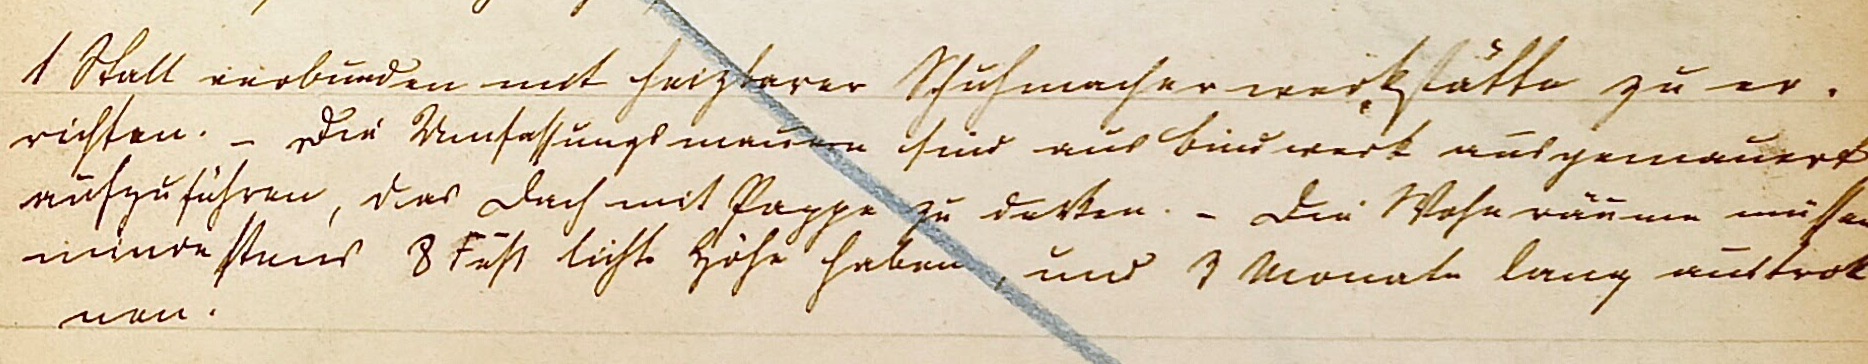 1 Stall verbunden mit heizbarer Schuhmacherwerkstätte zu er-
richten. - Die Umfassungsmauern sind aus Bindwerk ausgemauert
aufzuführen, das Dach mit Pappe zu decken. - Die Wohnräume müssen
mindestens 8 Fuß lichte Höhe haben, und 3 Monate lang austrock
nen.